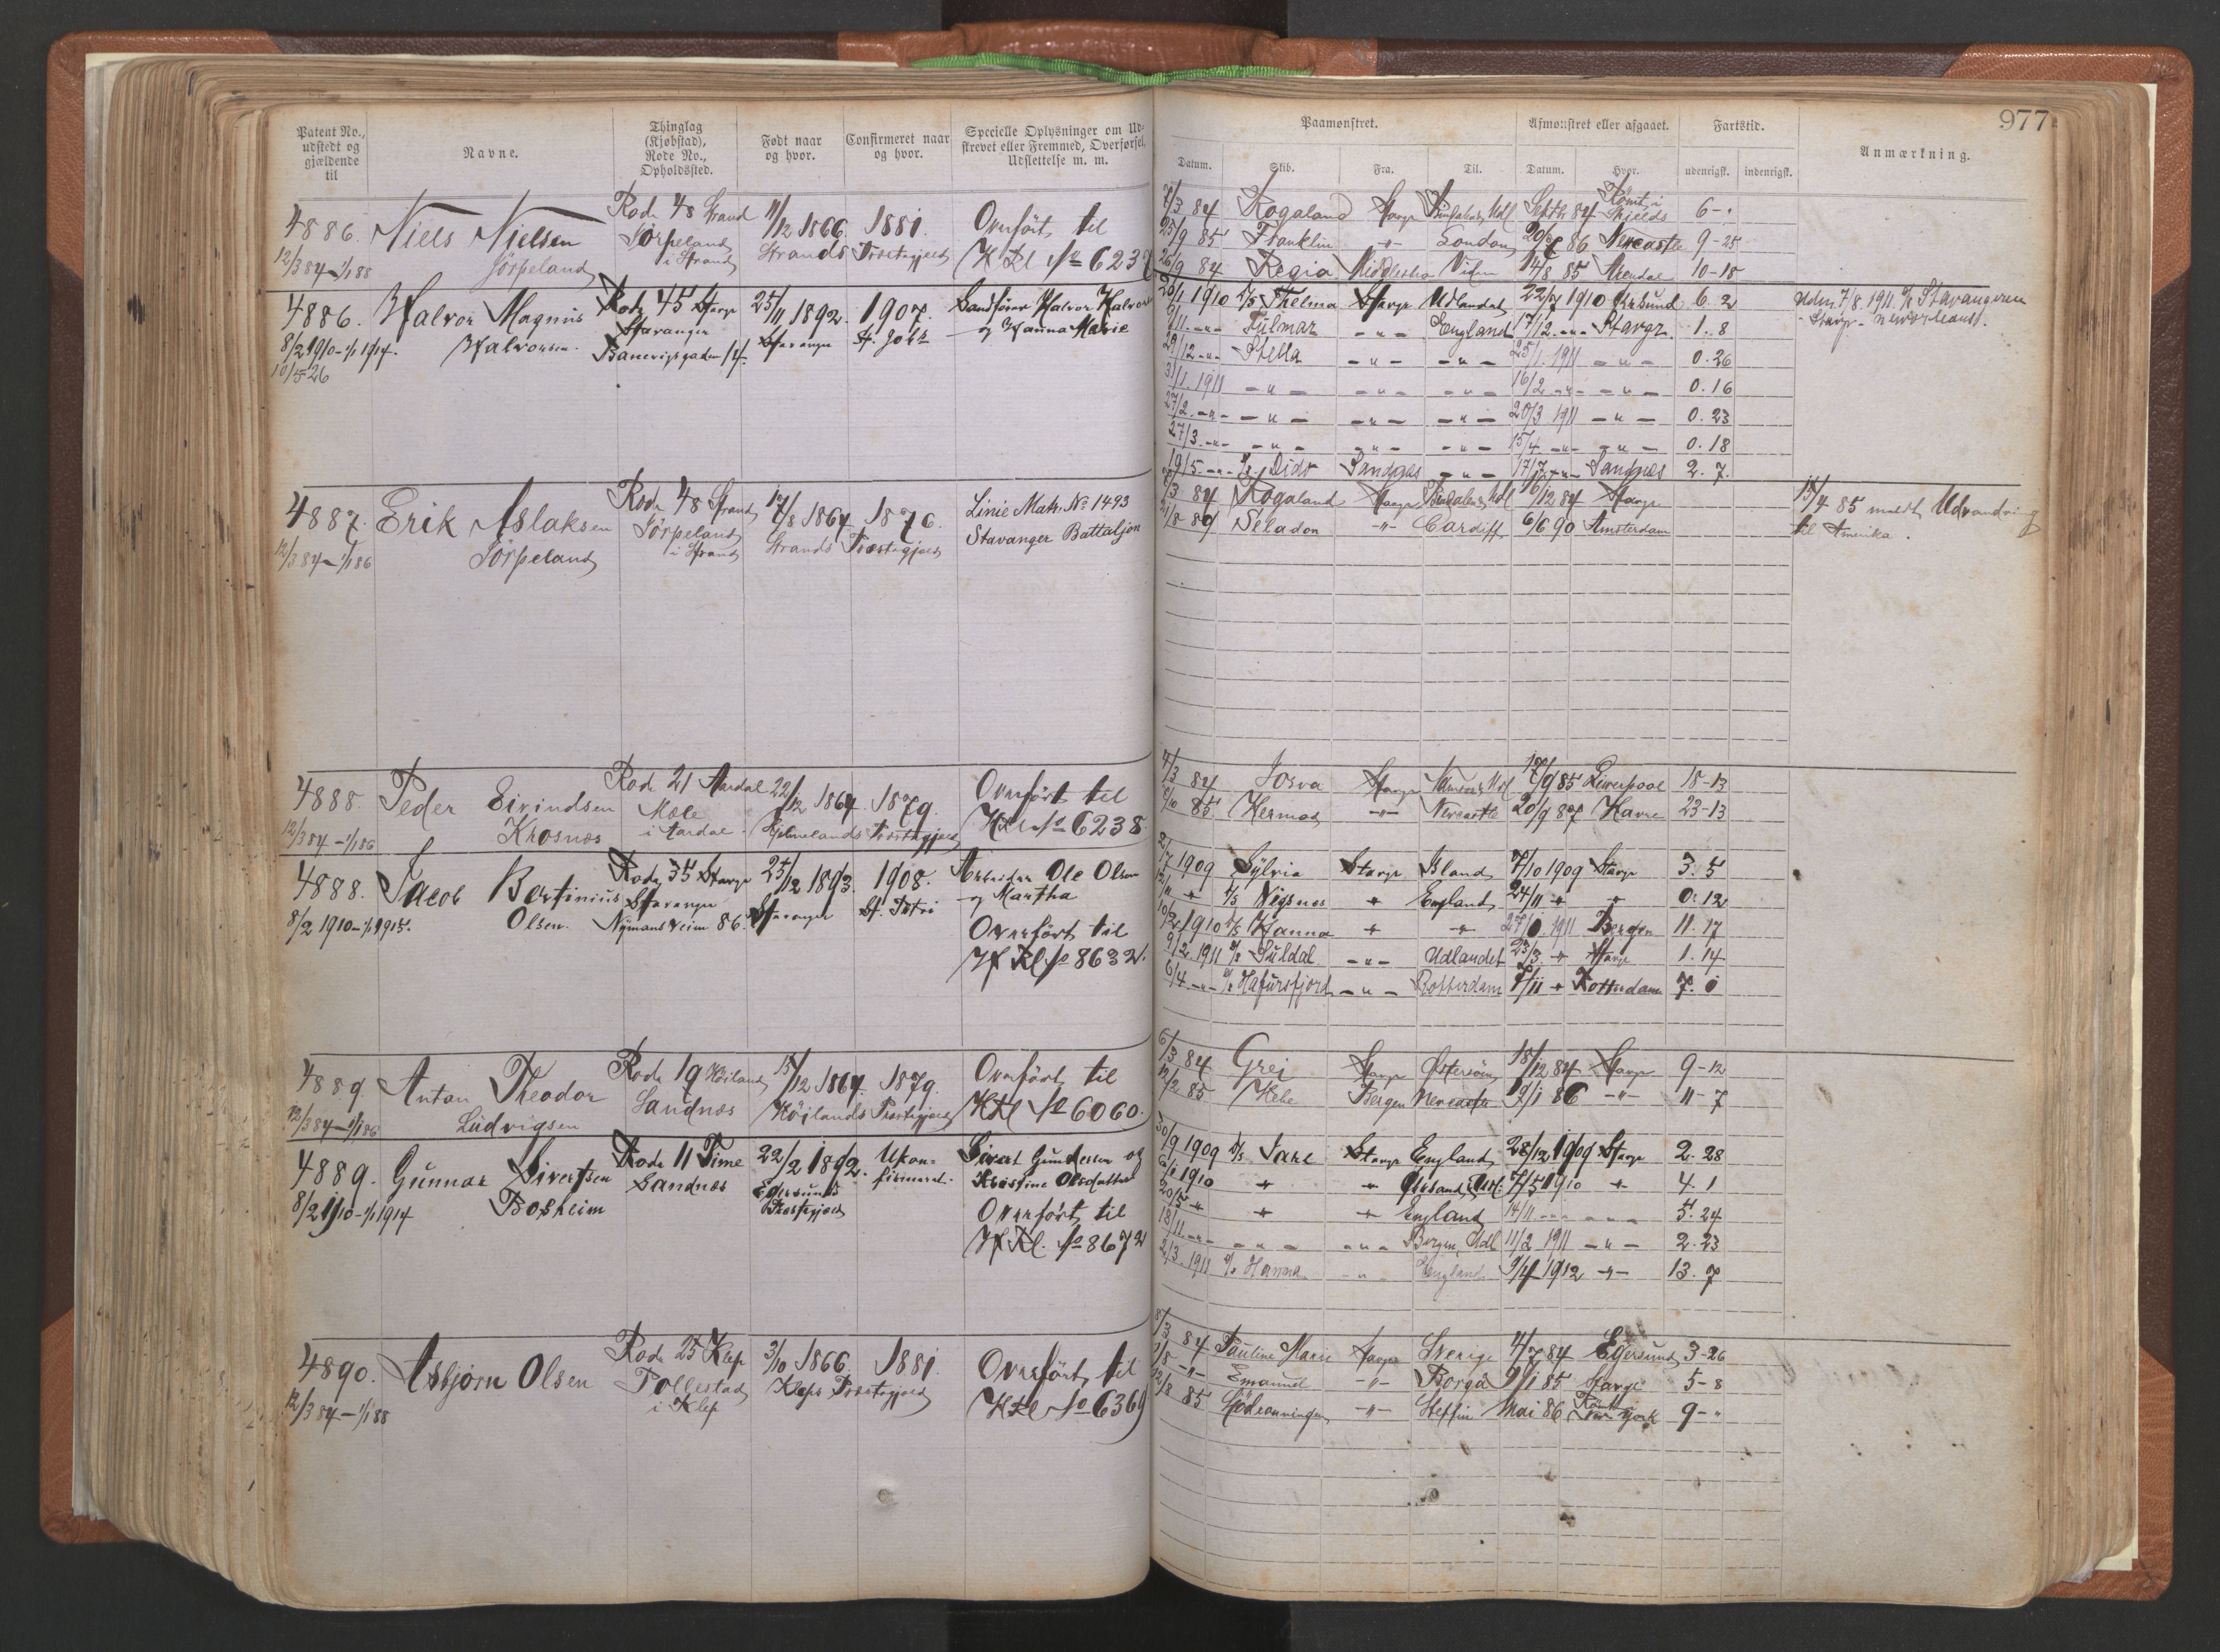 977
Patent No., udstedt og gjældende til
Navne.
Thinglag (Kjøbstad), Rode No., Opholdssted.
Født naar og hvor.
Confirmeret naar og hvor.
Specielle Oplysninger om Udskrevet eller Fremmed, Overførsel, Udslettelse m. m.
Paamønstret.
Afmønstret eller afgaaet.
Fartstid.
Anmærkning.
Datum. Skib. Fra. Til. Datum. Hvor. udenrigsk. indenrigsk.
4886. Niels Nielsen Rode 48 Strand 11/12 1866. 1881. Overført til
12/3 84 - 1/1 88 Jörpeland Jörpeland i Strand Strands Præstegjeld
7/3 84 Rogaland Stavgr Septb 84 Römt i 6 - "
25/9 85 Franklin -"- London 86 Newcastle 9 - 25
26/9 84 Regia 14/8 85 Arendal 10 - 18
4886. Halvor Magnus Rode 45 Stavgr 25/11 1892. 1907. Sandfører Halvor Halvors
8/2 1910 - 1/1 1914. Halvorsen. Stavanger Stavanger St. Joh. og Hanna Marie
10/5 26
20/1 1910 Thelma Stavgr Udlandet 22/7 1910 6. 2
England 17/12 -"- Stavgr. 1. 8
29/12 -"- Stella -"- -"- 25/1. 1911 -"- 0. 26
31/1. 1911 -"- -"- -"- 16/2 -"- -"- 0. 16
27/2. -"- -"- -"- -"- 20/3 1911 -"- 0. 23
27/3. -"- -"- -"- -"- 15/4 -"- -"- 0. 18
19/5. -"- Dido Sandnes -"- 17/7 -"- Sandnes 2. 7.
7/8. 1911 Stavangeren
4887. Erik Aslaksen Rode 48 Strand 17/8 1864 1876. Linie Matr. No 1493
12/3 84 - 1/1 86 Jörpeland Jörpeland i Strand Strands Præstegjeld Stavanger Battaljon
84 Rogaland Stavgr 6/12 84 Stavgr
21/8 89 Seladon -"- Cardiff 6/6 90 Amsterdam
15/4 85 meldt Udvandring
til Amerika.
4888. Peder Eivindsen Rode 21 Aardal 22/12 1864. 1879. Overført til
12/3 84 - 1/1 86 Krosnæs Mæle i Aardal Hjelmelands Præstegjeld H Kl No 6238
7/3 84 Josva Stavgr 17/9 85 Liverpool 18 - 13
85 Hermod -"- Newcastle 20/9 87 Havre 23 - 13
4888. Jacob Bertinius Rode 35 Stavgr 25/12 1893. 1908. Arbeider Ole Olsen
8/2 1910 - 1/1 1915. Olsen. Stavanger Nymansveien 86. Stavanger St. Petri og Martha
Overført til
H Kl No 8632.
1909 Sylvia Stavgr Island 7/10 1909 Stavgr 3. 5
England 24/11 0. 12
10/2 1910 Hanna 1911 Bergen 11. 17
9/2. 1911 Suldal -"- Udlandet 23/3. Stavgr 1. 14
6/4 -"- Hafursfjord -"- Rotterdam Rotterdam 7. 1
4889. Anton Theodor Rode 19 Höiland 15/12 1864. 1879. Overført til
12/3 84 - 1/1 86 Ludvigsen Sandnæs Höilands Præstegjeld H Kl No 6060.
6/3 84 Grei Stavgr Østersöen 18/12 84 Stavgr 9 - 12
12/2 85 Hebe Bergen Newcastle 86 -"- 11 - 7
4889. Gunnar Sivertsen Rode 11 Time 22/2 1892. Ukonfirmeret. Sivert Gundersen og
8/2 1910 - 1/1 1914 Bosheim Sandnæs Egersunds Præstegjeld Kristine Olsdatter
Overført til
H Kl. No 8672
30/9 1909 Stavgr England 28/12 1909 Stavgr 2. 28
1910 7/5 1910 4. 1
20/5 England 14/11 -"- -"- 5. 24
18/11 -"- -"- -"- Bergen, Udl 11/2 1911 -"- 2. 23
2/3. 1911 Hanna -"- England 9/4 1912 -"- 13. 7
4890. Asbjörn Olsen Rode 25 Klep 3/10 1866. 1881. Overført til
12/3 84 - 1/1 88 Tollestad i Klep Kleps Præstegjeld H Kl No 6369
8/3 84 Pauline Marie Stavgr Sverige 4/7 84 Egersund 3 - 26
-"- Emanuel -"- Borgå 9/1 85 Stavgr 5 - 8
12/8 85 -"- Stettin Mai 86 Römt New York 9 - "